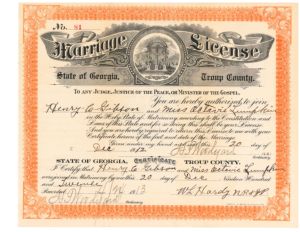 No. 81
Marriage License
State of Georgia, Troup County.
To any Judge, Justice of the Peace, or Minister of the Gospel.
You are hereby authorized to join
Henry C Gibson and Miss Octavie Lumpkin
in the Holy State of Matrimony, according to the Constitution and
Laws of this State and for so doing this shall be your License.
And you are hereby required to return this License to me with your
Certificate hereon of the fact and date of the Marriage.
Given under my hand and seal this 20 day of
Dec 191
STATE OF GEORGIA, Certificate TROUP COUNTY.
I Certify that Henry C Gibson and Miss Octavie Lumpkin
were joined in Matrimony by me this 20 day of Dec Nineteen Hundred
and Twelve
W L Hardy